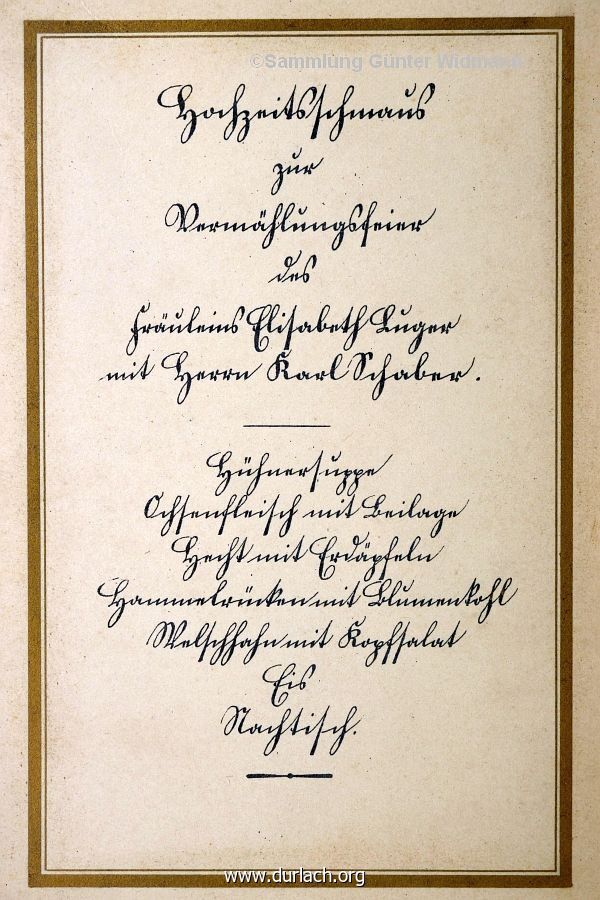 ©Sammlung Günter Widmann
Hochzeitsschmaus
zur
Vermählungsfeier
des
Fräuleins Elisabeth Luger
mit Herrn Karl Schaber.
Hühnersuppe
Ochsenfleisch mit Beilage
Hecht mit Erdäpfeln
Hammelrücken mit Blumenkohl
Welschhahn mit Kopfsalat
Eis
Nachtisch.
www.durlach.org